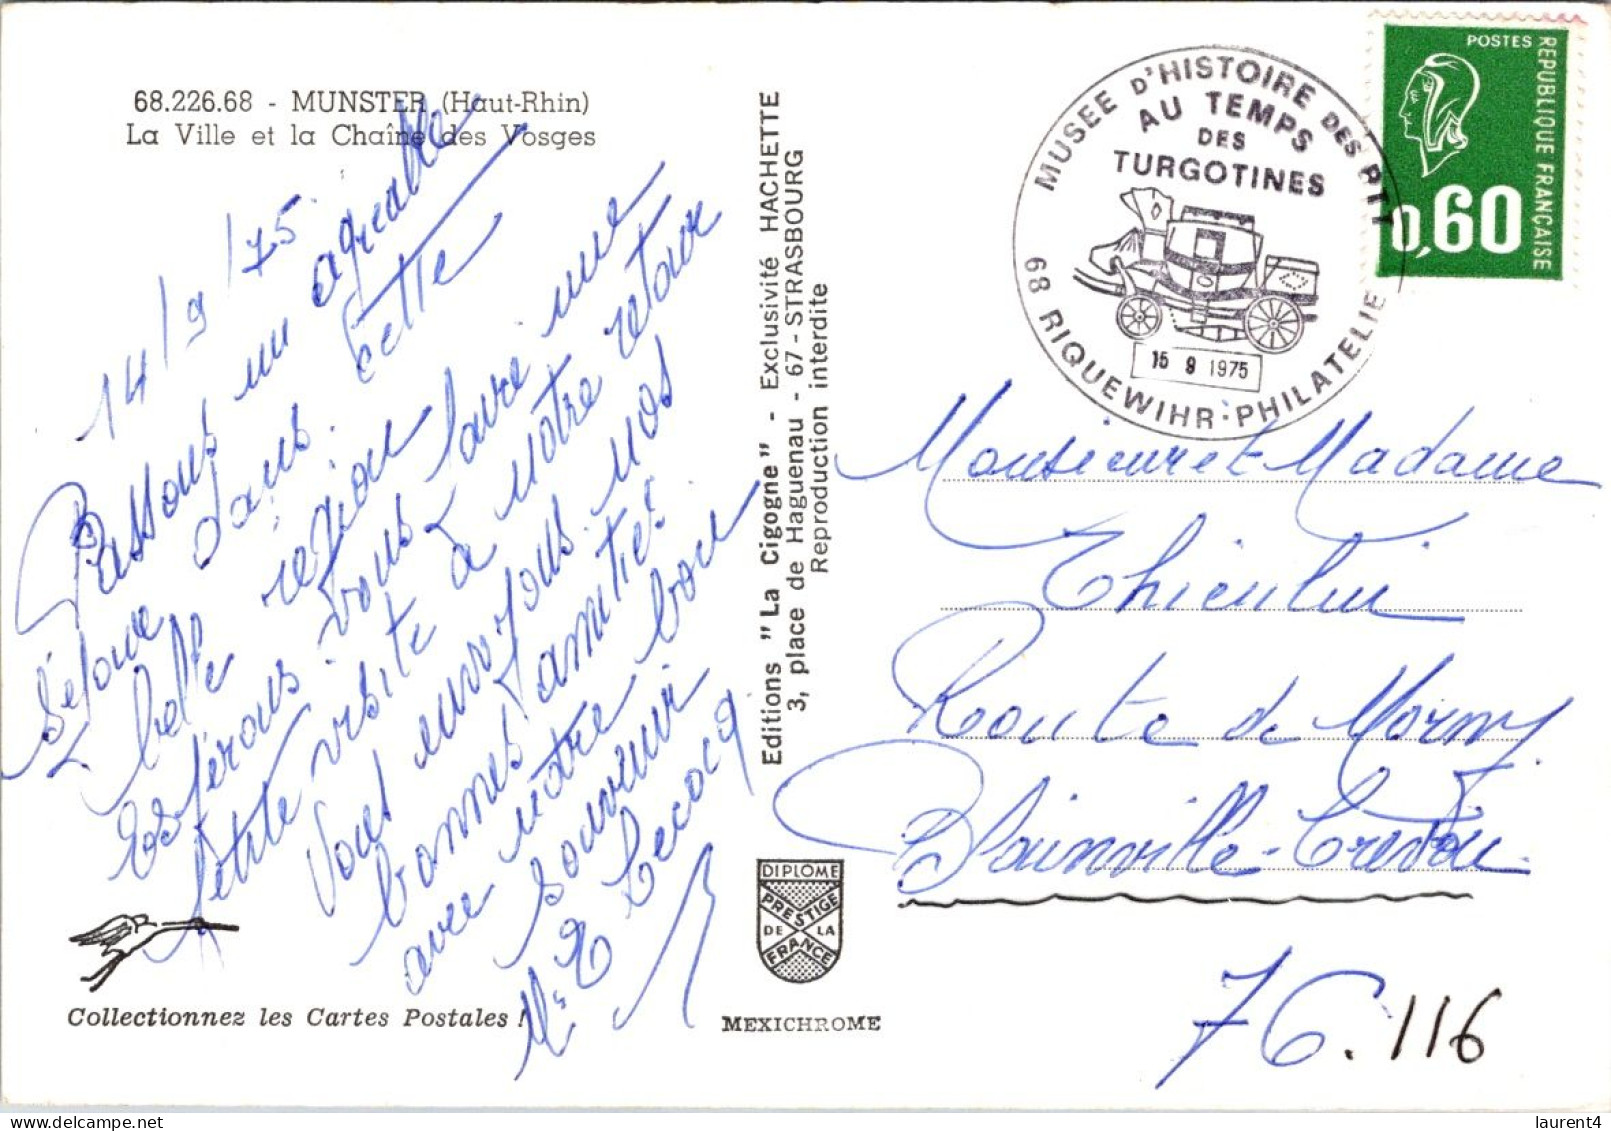 68.226.68 - MUNSTER (Haut-Rhin)
La Ville et la Chaîne des Vosges
14/9/75
Passons un agréable
séjour dans cette
belle région
Espérons vous faire une
petite visite à notre retour
Vous envoyons nos
bonnes amitiés
avec notre bon
souvenir
Mr E Lecocq
Editions "La Cigogne" - Exclusivité HACHETTE
3, place de Haguenau - 67 - STRASBOURG
Reproduction interdite
MUSEE D'HISTOIRE DES PTT
AU TEMPS
DES
TURGOTINES
15 9 1975
68 RIQUEWIHR · PHILATELIE
POSTES
REPUBLIQUE FRANÇAISE
0,60
Monsieur et Madame
Route de Morny
Blainville-Crevon
76.116
DIPLOME
PRESTIGE
DE LA
FRANCE
Collectionnez les Cartes Postales !
MEXICHROME
laurent4